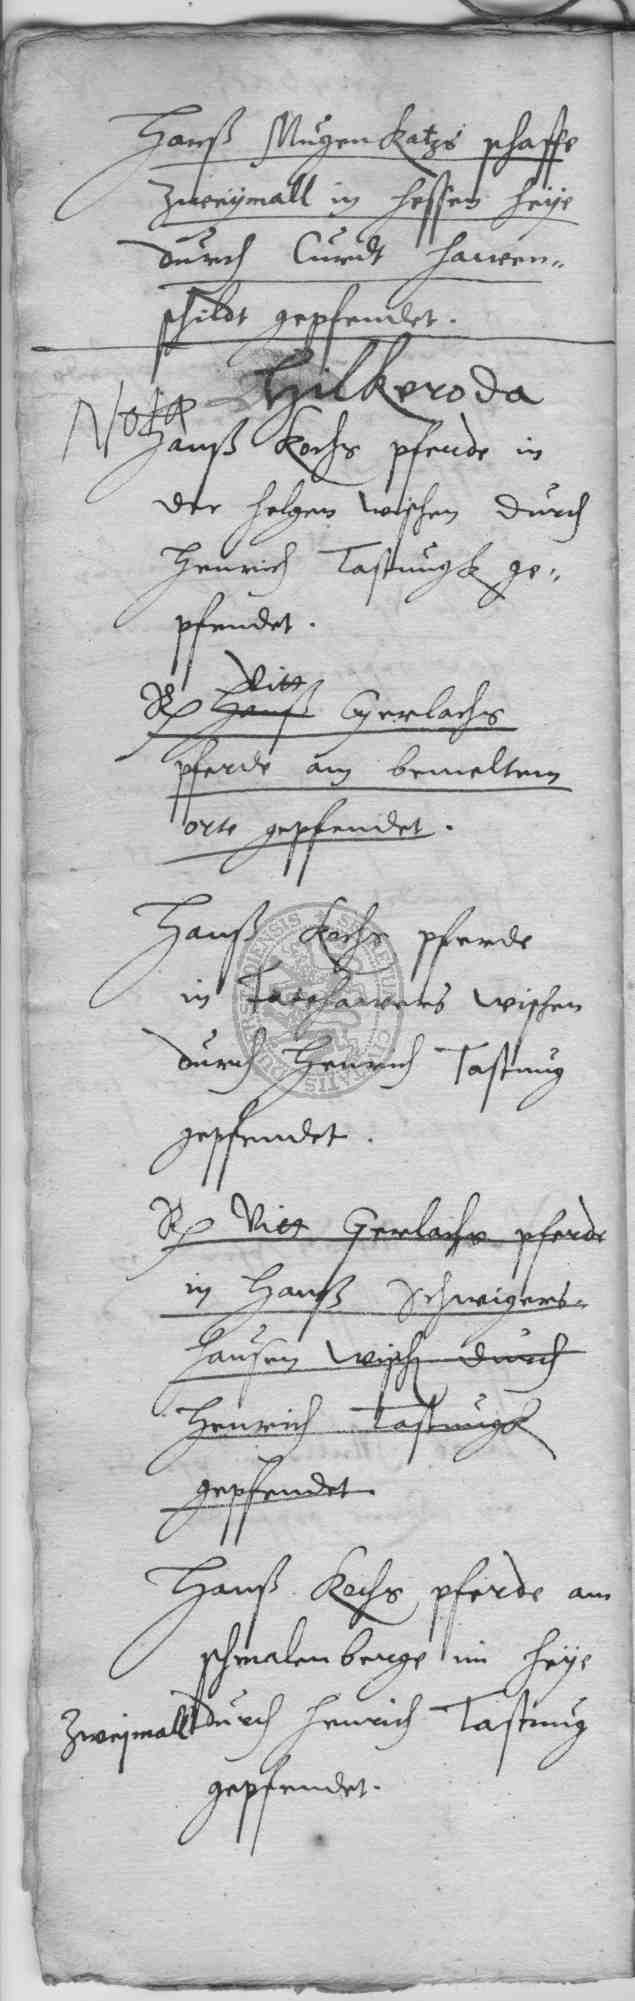 Hanß Mugenkatzs schaffe
Zweÿmall in hessen heÿe
durch Curdt hawen-
schildt gepfendet.
Hilkeroda
Nota
Hanß Kochs pferde in
der helgen wischen durch
Henrich Tastungk ge-
pfendet.
Vitt
Hanß Gerlachs
pferde am bemeltem
orte gepfendet.
Hanß Kochs pferde
in wischen
durch Henrich Tastung
gepfendet.
Vitt Gerlachs pferde
in Hanß Schweigers-
hausen wisch durch
Henrich Tastungk
gepfendet
Hanß Kochs pferde am
schmalenberge im heÿe
Zweimall durch henrich Tastung
gepfendet.